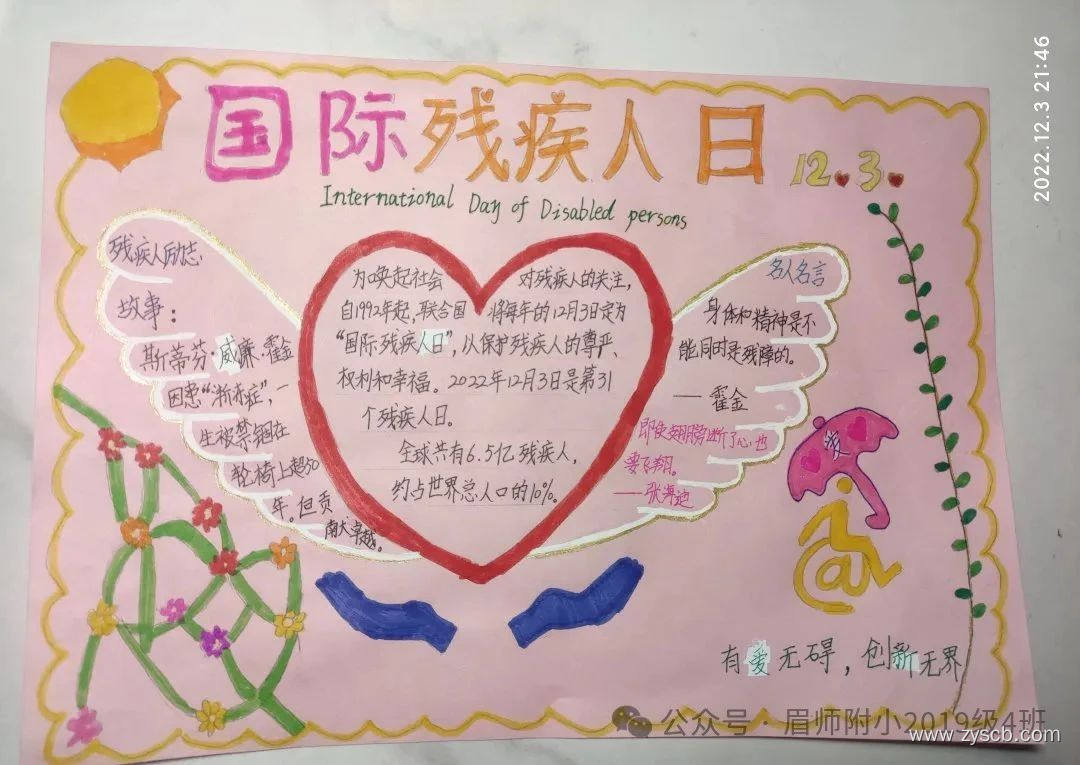 国际残疾人日 12.3.
International Day of Disabled persons
残疾人励志
故事：
斯蒂芬·威廉·霍金
因患“渐冻症”，一
生被禁锢在
轮椅上超50
年。但贡
献卓越。
为唤起社会 对残疾人的关注，
自1992年起，联合国 将每年的12月3日定为
“国际残疾人日”，以保护残疾人的尊严、
权利和幸福。2022年12月3日是第31
个残疾人日。
全球共有6.5亿残疾人，
约占世界总人口的10%。
名人名言
身体和精神是不
能同时是残障的。
——霍金
即使翅膀断了心也
要飞翔。
——张海迪
爱
有爱无碍，创新无界
2022.12.3 21:46
公众号·眉师附小2019级4班
www.zyscb.com